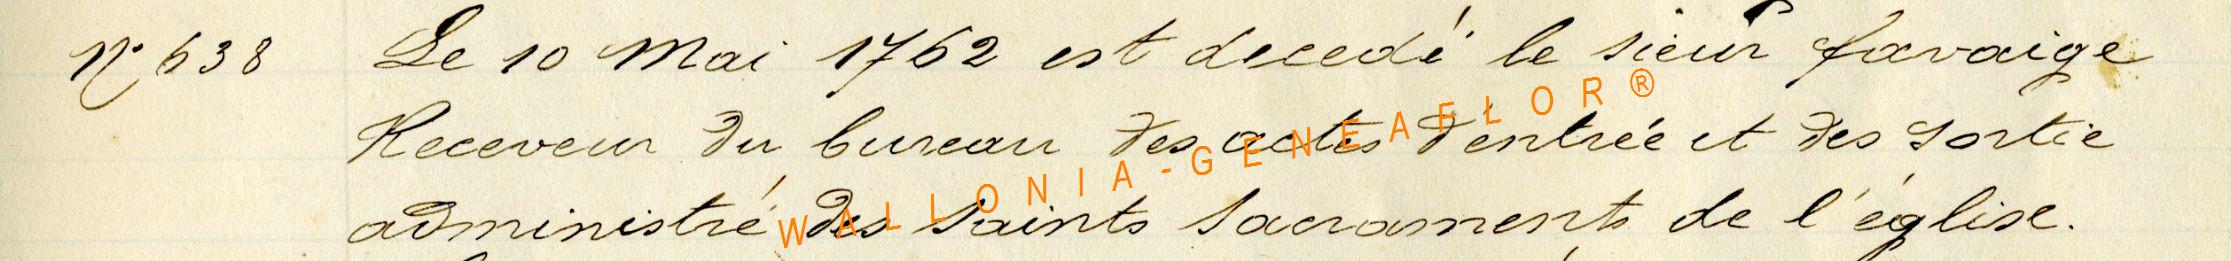 N° 638 Le 10 Mai 1762 est decedé le sieur favaige
Receveur du bureau des actes d'entrée et des sortie
administré des saints sacraments de l'église.
WALLONIA-GENEAFLOR®